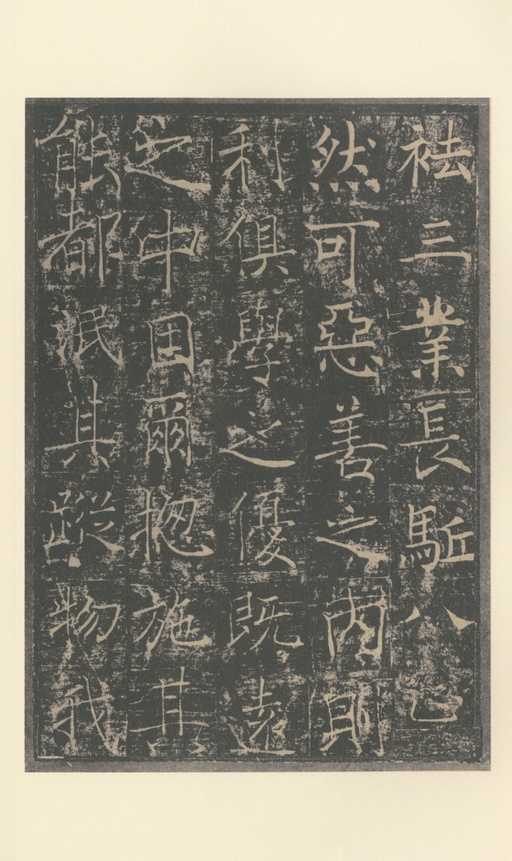 祛三業長駈八
然可惡善之則
利俱學之優既遠
之因爾揔施其
能都泯其蹤物我